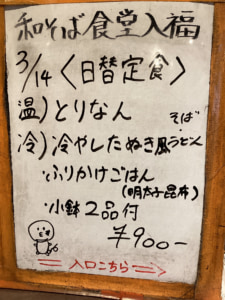 和そば食堂入福
3/14〈日替定食〉
温)とりなん
そば・うどん
冷)冷やしたぬき風
・ふりかけごはん
(明太子昆布)
・小鉢2品付
¥900-
= 入口こちら ⇒